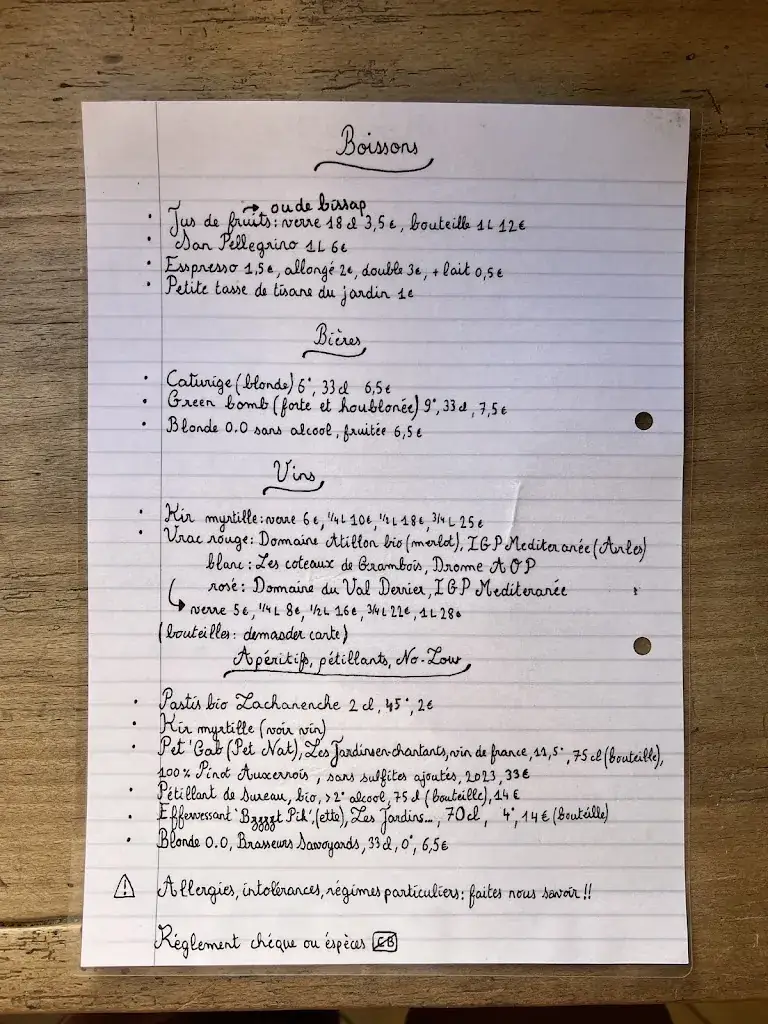 Boissons
→ ou de bissap
• Jus de fruits: verre 18 cl 3,5€, bouteille 1L 12€
• San Pellegrino 1L 6€
• Esspresso 1,5€, allongé 2€, double 3€, + lait 0,5€
• Petite tasse de tisane du jardin 1€
Bières
• Caturige (blonde) 6°, 33cl 6,5€
• Green bomb (forte et houblonée) 9°, 33cl, 7,5€
• Blonde 0.0 sans alcool, fruitée 6,5€
Vins
• Kir myrtille: verre 6€, 1/4L 10€, 1/2L 18€, 3/4L 25€
• Vrac rouge: Domaine Atillon bio (merlot), IGP Mediteranée (Arles)
blanc: Les coteaux de Grambois, Drome AOP
rosé: Domaine du Val Derrier, IGP Mediteranée
verre 5€, 1/4L 8€, 1/2L 16€, 3/4L 22€, 1L 28€
(bouteilles: demander carte)
Apéritifs, pétillants, No-Low
• Pastis bio Lachanenche 2 cl, 45°, 2€
• Kir myrtille (voir vin)
• Pet'Gab (Pet Nat), Les Jardins en-chantants, vin de france, 11,5°, 75 cl (bouteille),
100% Pinot Auxerrois, sans sulfites ajoutés, 2023, 33€
• Pétillant de Sureau, bio, >2° alcool, 75 cl (bouteille), 14€
• Effervessant 'Bzzzt Pik', (ette), Les Jardins..., 70cl, 4°, 14€ (bouteille)
• Blonde 0.0, Brasseurs Savoyards, 33cl, 0°, 6,5€
⚠ Allergies, intolérances, régimes particuliers: faites nous savoir!!
Réglement chéque ou éspèces CB